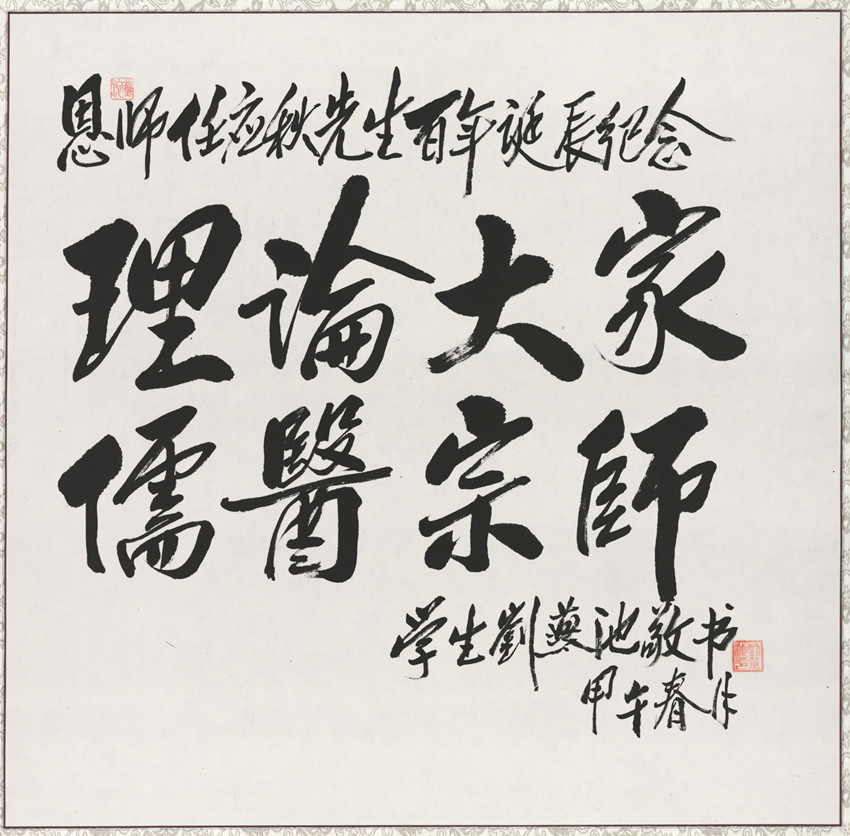 恩师任应秋先生百年诞辰纪念
理論大家
儒醫宗師
学生劉燕池敬书
甲午春月